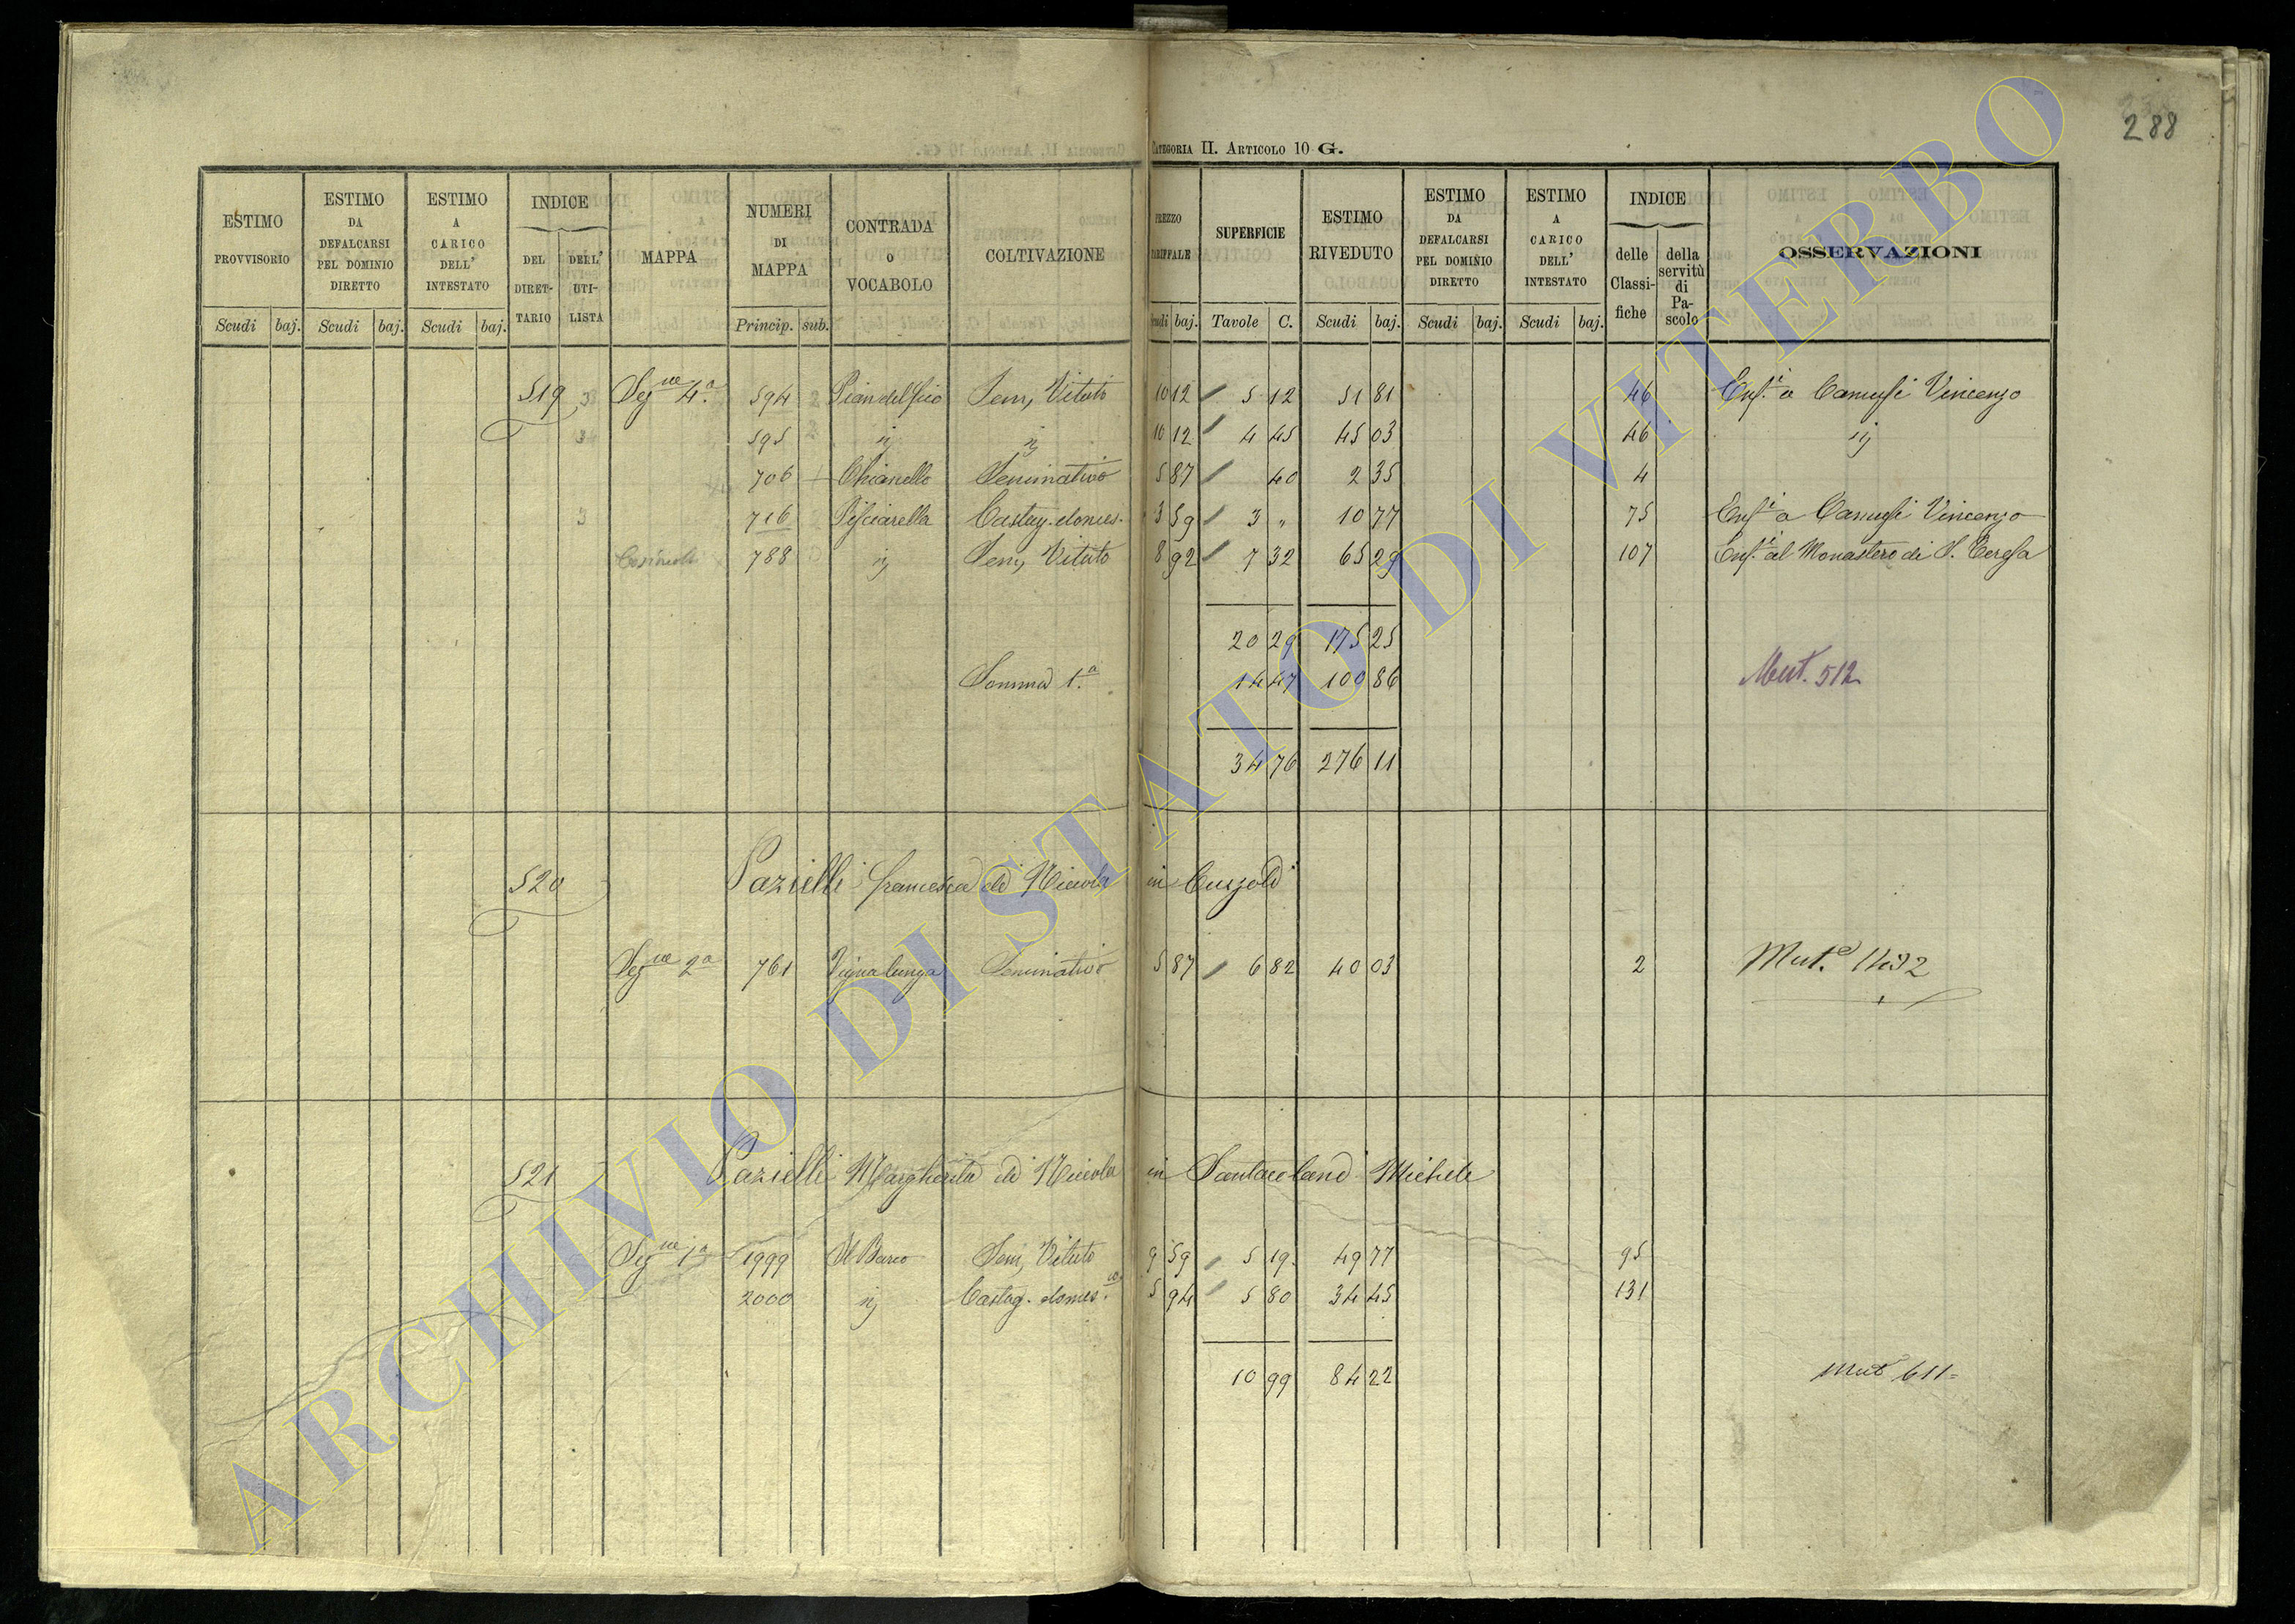 288
CATEGORIA II. ARTICOLO 10 G.
ESTIMO PROVVISORIO
ESTIMO DA DEFALCARSI PEL DOMINIO DIRETTO
ESTIMO A CARICO DELL' INTESTATO
INDICE
DEL DIRET-TARIO
DELL' UTI-LISTA
MAPPA
NUMERI DI MAPPA
CONTRADA O VOCABOLO
COLTIVAZIONE
PREZZO TARIFFALE
SUPERFICIE
ESTIMO RIVEDUTO
ESTIMO DA DEFALCARSI PEL DOMINIO DIRETTO
ESTIMO A CARICO DELL' INTESTATO
INDICE
delle Classi-fiche
della servitù di Pa-scolo
OSSERVAZIONI
Scudi baj. Scudi baj. Scudi baj. Princip. sub. Scudi baj. Tavole C. Scudi baj. Scudi baj. Scudi baj.
519 3 Segne 4a 594 2 Sem, Vitato 10 12 5 12 51 81 46 Enf.i a Camusi Vincenzo
595 2 ij ij 10 12 4 45 45 03 46 ij
706 Chianello Seminativo 5 87 40 2 35 4
3 716 Pisciarella Castag. domes. 3 59 3 " 10 77 75 Enf.i a Camusi Vincenzo
788 ij Sem, Vitato 8 92 7 32 65 29 107 Enf.i al Monastero di S. Teresa
20 29 175 25
Somma 1.a 14 47 100 86 Mut. 512
34 76 276 11
520 Pazielli Francesca di Nicola in
Segne 2a 761 Vignalunga Seminativo 5 87 6 82 40 03 2 Mut.e
521 Pazielli Margherita di Nicola in Michele
Segne 1a 1999 Il Barco Sem, Vitato 9 59 5 19 49 77 95
2000 ij Castag. domes.co 5 94 5 80 34 45 131
10 99 84 22
Mut 611=
ARCHIVIO DI STATO DI VITERBO